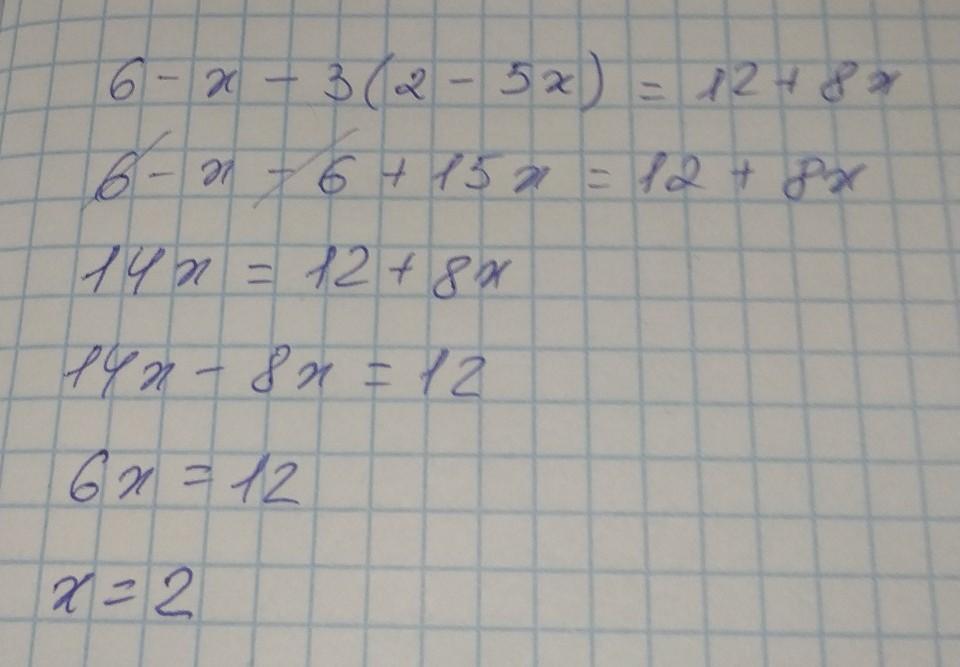 6 - x - 3(2 - 5x) = 12 + 8x
6 - x - 6 + 15x = 12 + 8x
14x = 12 + 8x
14x - 8x = 12
6x = 12
x = 2